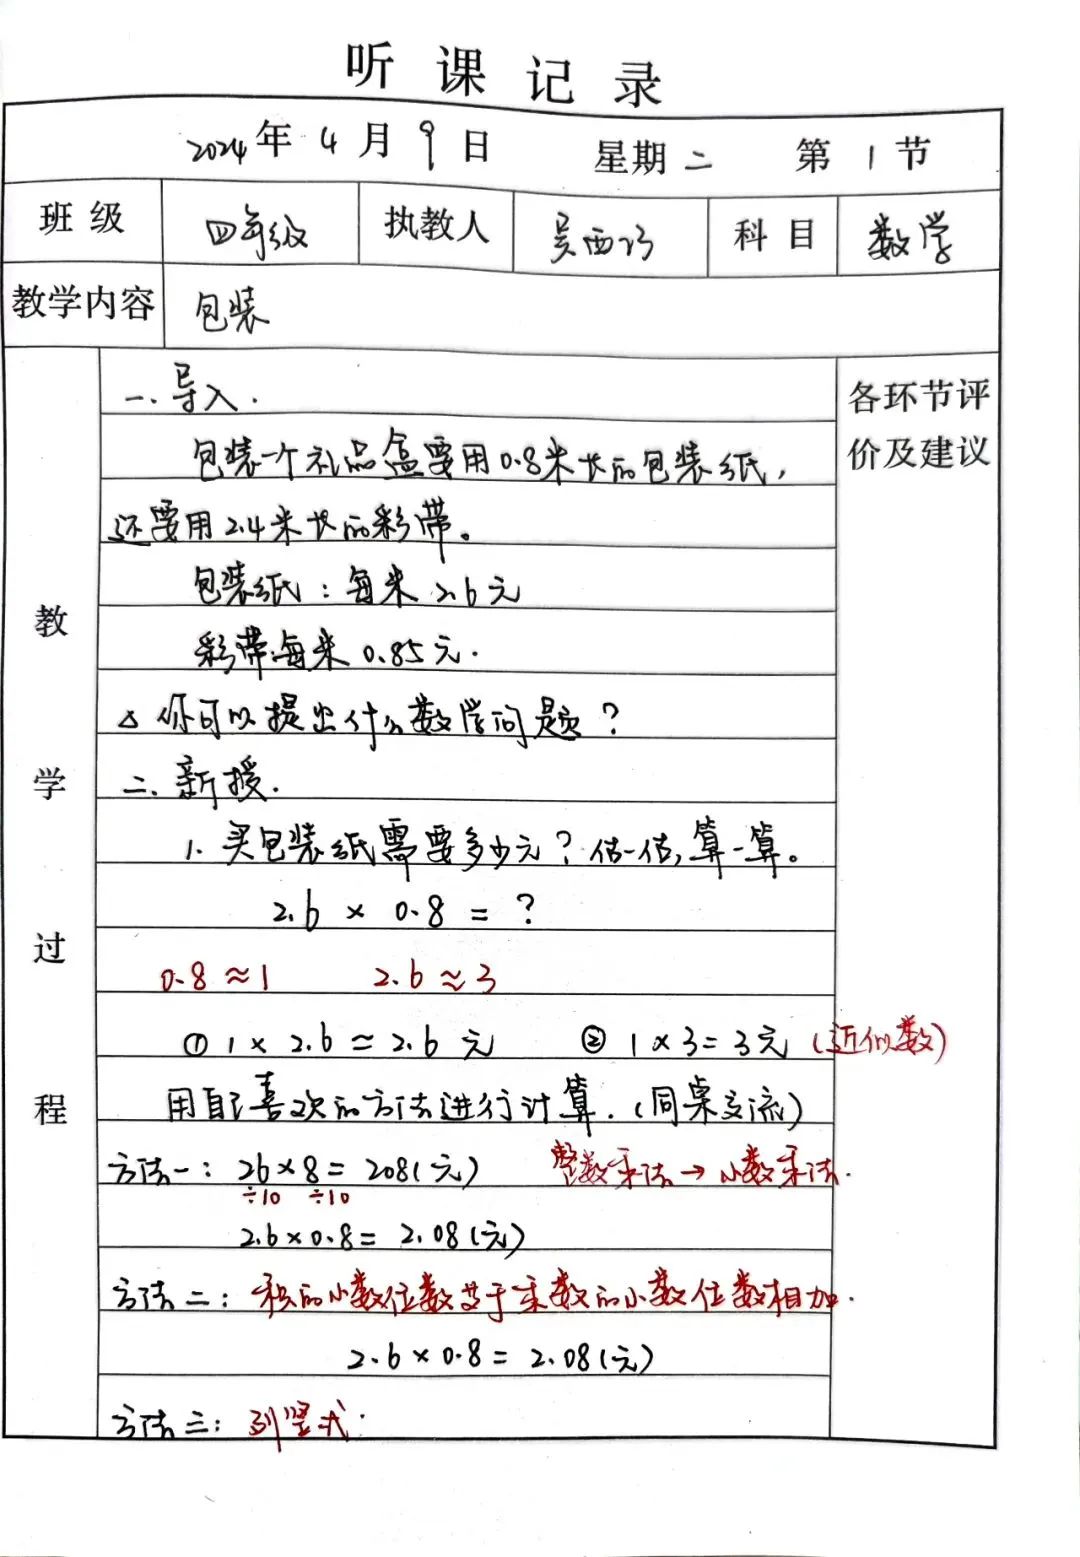 听课记录
2024年4月9日 星期二 第1节
班级 四年级 执教人 吴西 科目 数学
教学内容 包装
教学过程
各环节评价及建议
一、导入.
包装一个礼品盒要用0.8米长的包装纸,
还要用2.4米长的彩带。
包装纸:每米2.6元
彩带:每米0.85元.
△你可以提出什么数学问题?
二、新授.
1、买包装纸需要多少元?估一估,算一算。
2.6 × 0.8 = ?
0.8≈1 2.6≈3
①1×2.6≈2.6元 ②1×3=3元(近似数)
用自己喜欢的方法进行计算.(同桌交流)
方法一:26×8=208(元) 整数乘法→小数乘法.
÷10 ÷10
2.6×0.8= 2.08(元)
方法二:积的小数位数等于乘数的小数位数相加.
2.6×0.8=2.08(元)
方法三:列竖式.